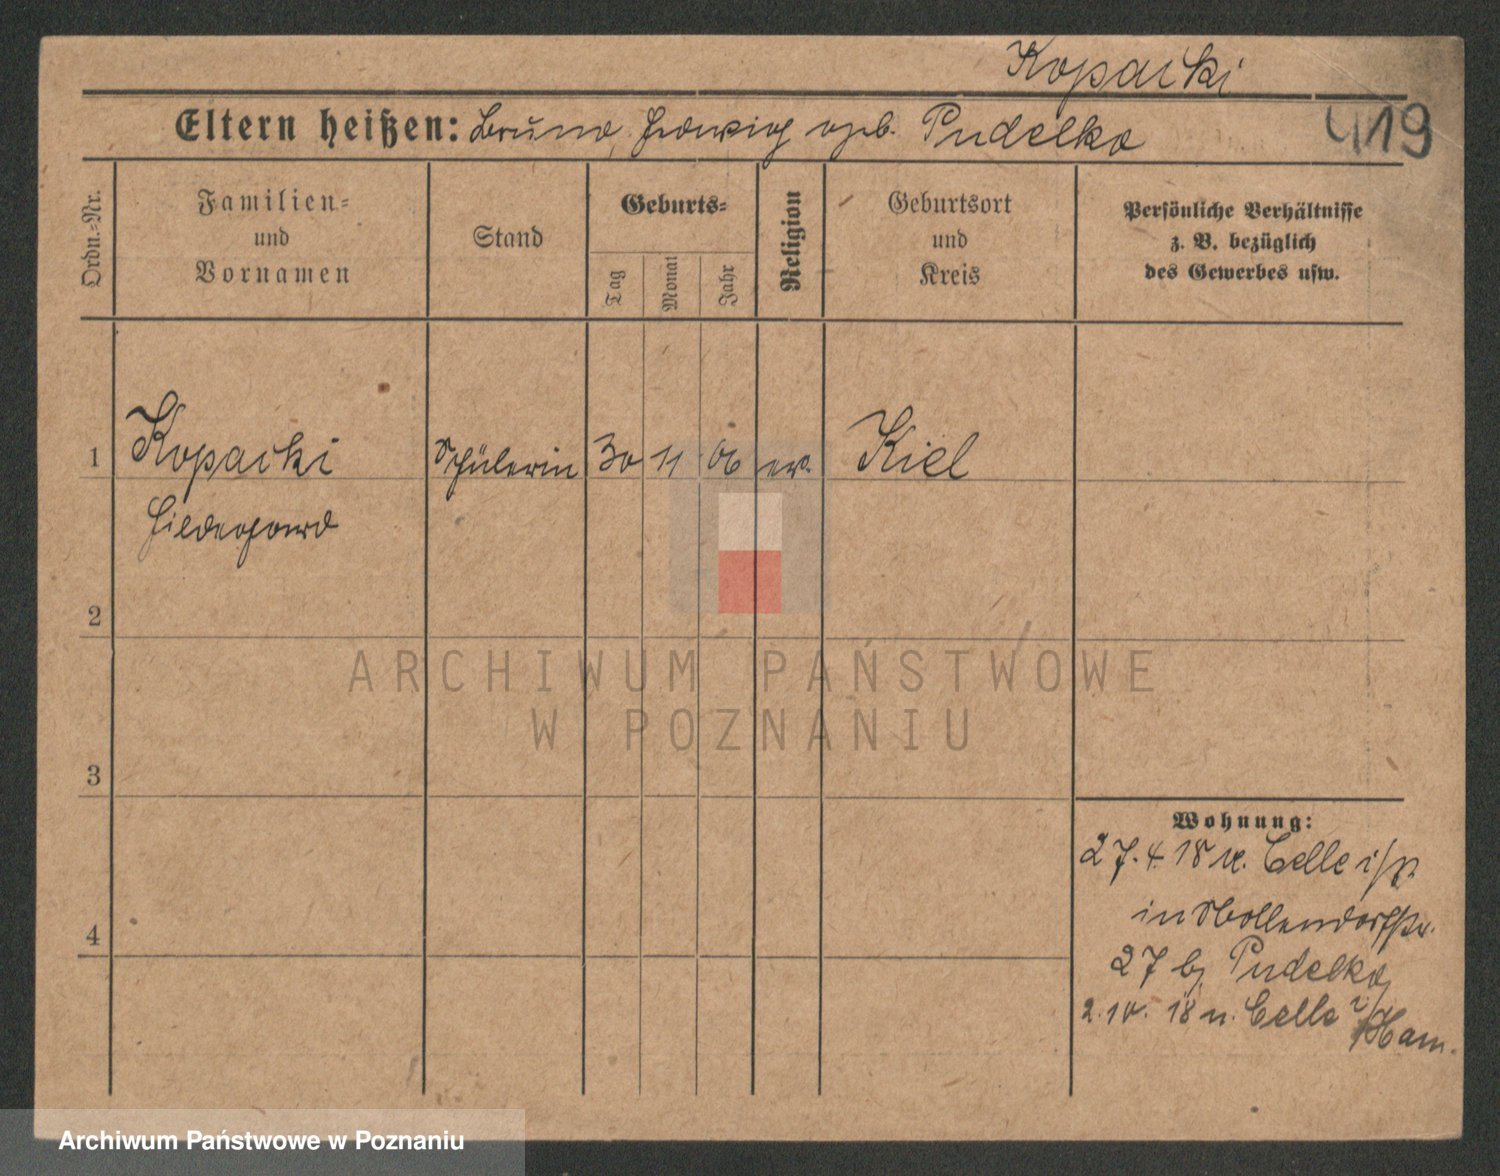 Kopacki
Eltern heißen: Bruno, Hedwig geb. Pudelko
419
Ordn.-Nr.
Familien-
und
Vornamen
Stand
Geburts-
Tag
Monat
Jahr
Religion
Geburtsort
und
Kreis
Persönliche Verhältnisse
z. B. bezüglich
des Gewerbes usw.
1 Kopacki Schülerin 30 11 06 ev. Kiel
Hildegard
2
3
4
ARCHIWUM PAŃSTWOWE
W POZNANIU
Wohnung:
27.4.18 v. Celle
in Nollendorfstr.
27 b/ Pudelko
2.10.18 n. Celle i/Han.
Archiwum Państwowe w Poznaniu